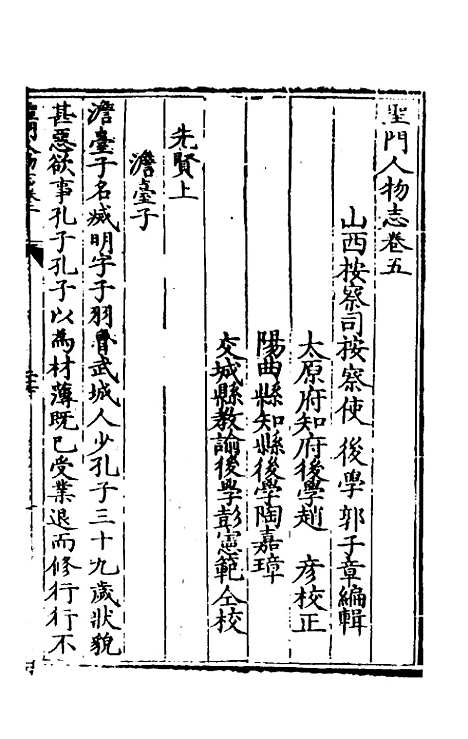 聖門人物志卷五
山西按察司按察使後學郭子章編輯
太原府知府後學趙　彥校正
陽曲縣知縣後學陶嘉璋
交城縣教諭後學彭憲範仝校
先賢上
澹臺子
澹臺子名滅明字子羽魯武城人少孔子三十九歲狀貌
甚惡欲事孔子孔子以為材薄既已受業退而修行行不